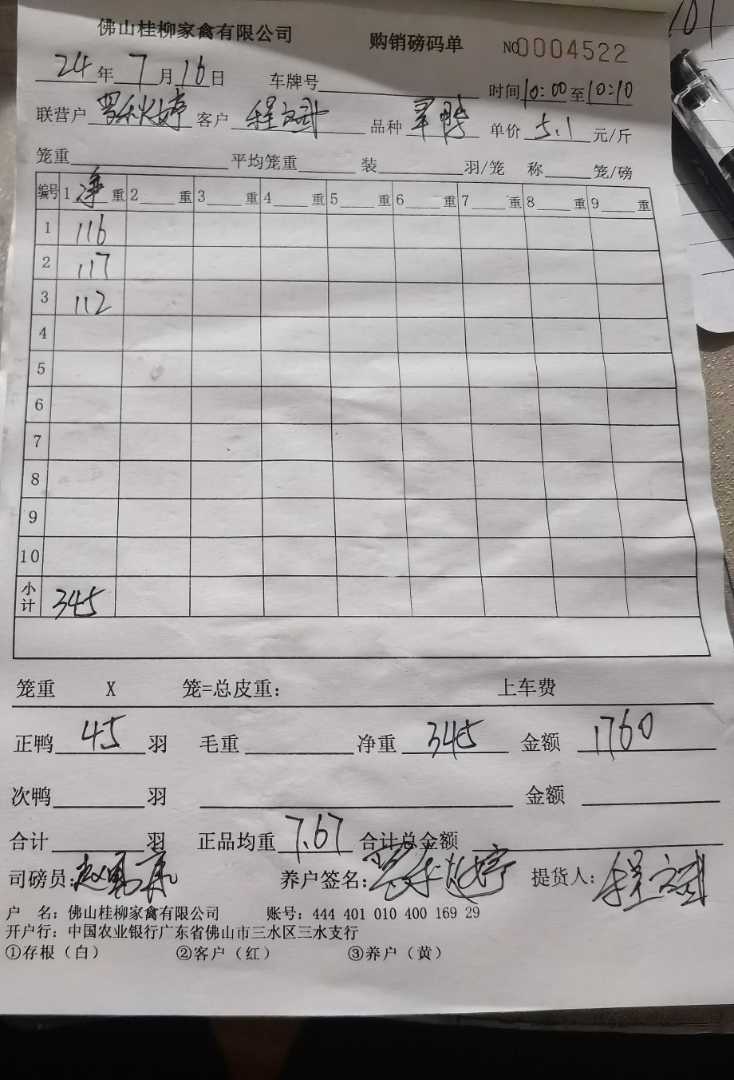 佛山桂柳家禽有限公司 购销磅码单 NO0004522
24年7月16日 车牌号 时间10:00至10:10
联营户 客户 程文斌 品种 单价 5.1 元/斤
笼重 平均笼重 装 羽/笼 称 笼/磅
编号 1净重 2 重 3 重 4 重 5 重 6 重 7 重 8 重 9 重
1 116
2 117
3 112
4
5
6
7
8
9
10
小计 345
笼重 X 笼=总皮重: 上车费
正鸭 45 羽 毛重 净重 345 金额 1760
次鸭 羽 金额
合计 羽 正品均重 7.67 合计总金额
司磅员: 养户签名: 提货人: 程文斌
户 名: 佛山桂柳家禽有限公司 账号: 444 401 010 400 169 29
开户行: 中国农业银行广东省佛山市三水区三水支行
①存根(白) ②客户(红) ③养户(黄)